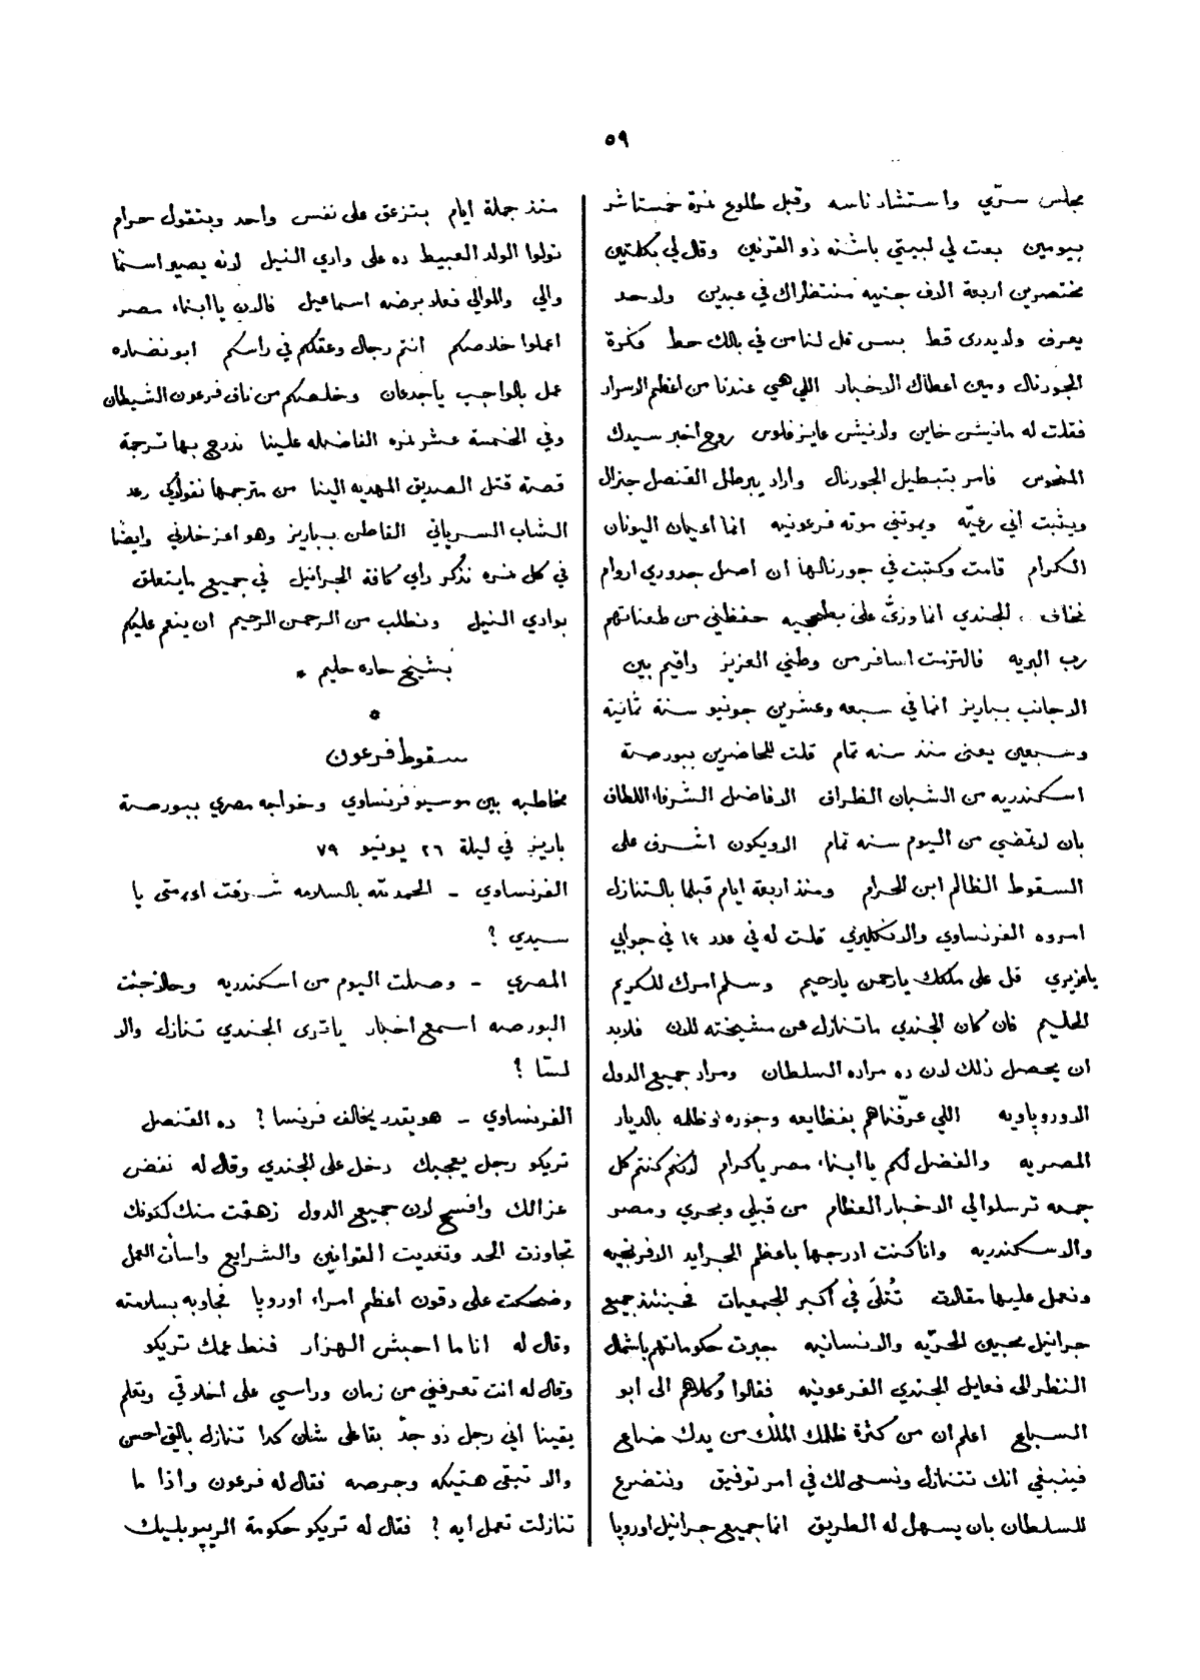 ٥٩
مجلس سرّي واستشار ناسه وقبل طلوع نمرة خمستاشر
بيومين بعت لي لبيتي باشته ذو القرنين وقال لي بكلمتين
مختصرين اربعة آلاف جنيه منتظراك في عبدين ولا حد
يعرف ولا يدرى قط بس قل لنا من في بالك حط فكرة
الجورنال ومين اعطاك الاخبار اللي هي عندنا من اعظم الاسرار
فقلت له مانيش خاين ولا نيش عايز فلوس روح أخبر سيدك
المنحوس فامر بتبطيل الجورنال واراد يبرطل القنصل جنرال
ويثبت أني رعيّه ويموتني موته فرعونيه انما أعيان اليونان
الكرام قامت وكتبت في جورنالها ان اصل جدوري اروام
فخاف الجندي انما وزّ على بلطجيه حفظني من طعناتهم
رب البريه فالتزمت اسافر من وطني العزيز واقيم بين
الاجانب بباريز انما في سبعه وعشرين جونيو سنة ثمانية
وسبعين يعنى منذ سنه تمام قلت للحاضرين ببورصة
اسكندريه من الشبان الظراف الافاضل الشرفاء اللطاف
بان لا تمضي من اليوم سنه تمام الا ويكون اشرف على
السقوط الظالم ابن الحرام ومنذ اربعة ايام قبلما بالتنازل
امروه الفرنساوي والانكليزي قلت له في عدد ١٤ في جوابي
يا عزيزي قل على ملكك يارحمن يارحيم وسلم امرك للكريم
الحليم فان كان الجندي ماتنازل عن مشيخته للان فلابد
ان يحصل ذلك لان ده مراده السلطان ومراد جميع الدول
الاوروپاويه اللي عرّفناهم بفظايعه وجوره وظلمه بالديار
المصريه والفضل لكم يا ابناء مصر ياكرام لأنكم كنتم كل
جمعه ترسلوا لي الاخبار العظام من قبلي وبحري ومصر
والاسكندريه وانا كنت ادرجها باعظم الجرايد الافرنجيه
ونعمل عليها مقالات تُتلَى في أكبر الجمعيات فحينئذ جميع
جرانيل محبين الحرّيه والانسانيه جبرت حكوماتهم باشمال
النظر الى فعايل الجندي الفرعونيه فقالوا وكلاهم الى ابو
السباع اعلم أن من كثرة ظلمك الملك من يدك ضاع
فينبغي انك تتنازل ونسعى لك في امر توفيق ونتضرع
للسلطان بان يسهل له الطريق انما جميع جرانيل اوروپا
منذ جملة ايام بتزعق على نفس واحد وبتقول حرام
تولوا الولد العبيط ده على وادي النيل لانه يصير اسمًا
والي والموالي فعلا برضه اسماعيل فالان يا ابناء مصر
اعملوا خلاصكم انتم رجال وعقلكم في راسكم ابو نضاره
عمل بالواجب ياجدعان وخلصكم من ناف فرعون الشيطان
وفي الخمسة عشر نمره الفاضله علينا ندرج بها ترجمة
قصة قتل الصديق المهديه الينا من مترجمها نقولاكي رعد
الشاب السرياني القاطن بباريز وهو اعز خلاني وايضًا
في كل نمره نذكر راي كافة الجرانيل في جميع مايتعلق
بوادي النيل ونطلب من الرحمن الرحيم ان ينعم عليكم
بشيخ حاره حليم *
*
سقوط فرعون
مخاطبه بين موسيو فرنساوي وخواجه مصري ببورصة
باريز في ليلة ٢٦ يونيو ٧٩
الفرنساوي - الحمد لله بالسلامه شرفت اومتى يا
سيدي ؟
المصري - وصلت اليوم من اسكندريه وحالا جئت
البورصه اسمع اخبار ياترى الجندي تنازل والا
لسّا ؟
الفرنساوي - هو يقدر يخالف فرنسا ؟ ده القنصل
تريكو رجل يعجبك دخل على الجندي وقال له نفض
عزالك وافسح لان جميع الدول زهقت منك لكونك
تجاوزت الحد وتعديت القوانين والشرايع واسأت العمل
وضحكت على دقون أعظم امراء اوروپا فجاوبه بسلامته
وقال له انا ما احبش الهزار فنط عمك تريكو
وقال له انت تعرفني من زمان وراسي على اخلاقي وتعلم
يقينا أني رجل ذو جدّ بقا على شان كدا تنازل بالتي احسن
والا تبقى هتيكه وجرصه فقال له فرعون واذا ما
تنازلت تعمل ايه ؟ فقال له تريكو حكومة الريپوبليك